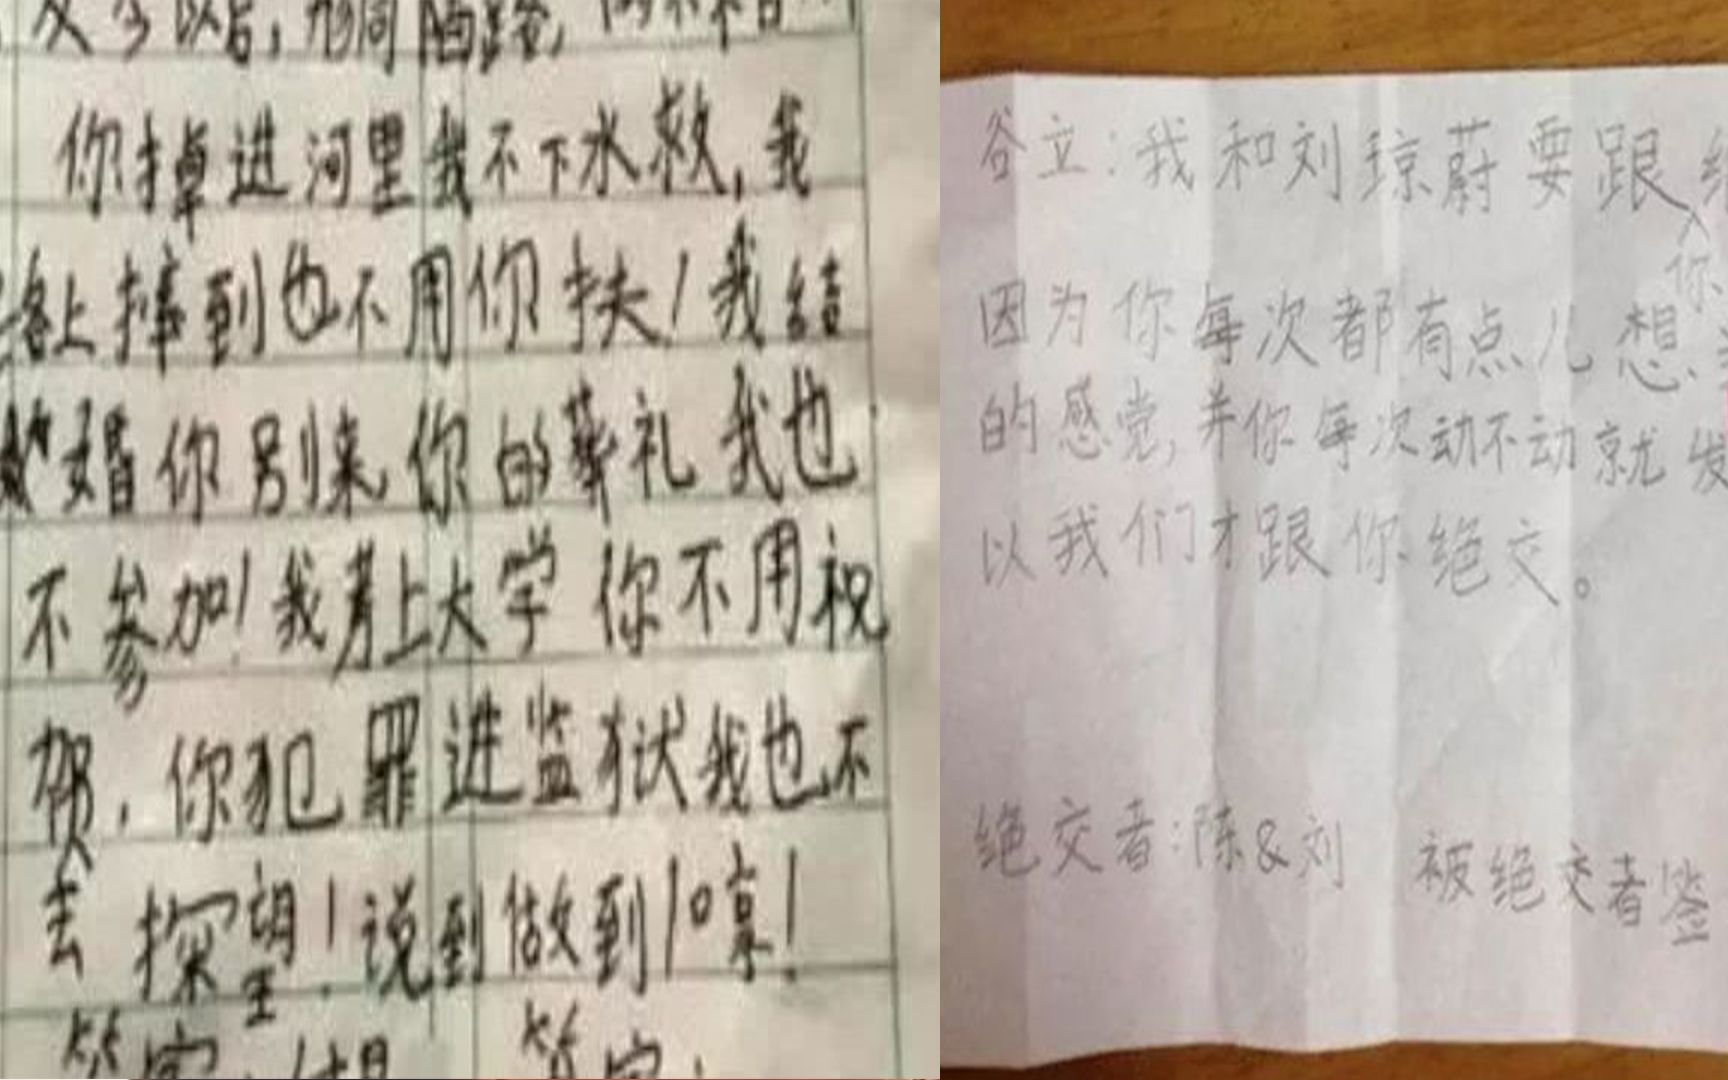 以后,形同陌路,
你掉进河里我不下水救,我
路上摔到也不用你扶!我结
婚你别来,你的葬礼我也
不参加!我考上大学你不用祝
贺,你犯罪进监狱我也不
去探望!说到做到!哼!
签字: 签字:
谷立:我和刘琼蔚要跟
你
因为你每次都有点儿想
的感觉,并你每次动不动就发
以我们才跟你绝交。
绝交者:陈&刘 被绝交者签